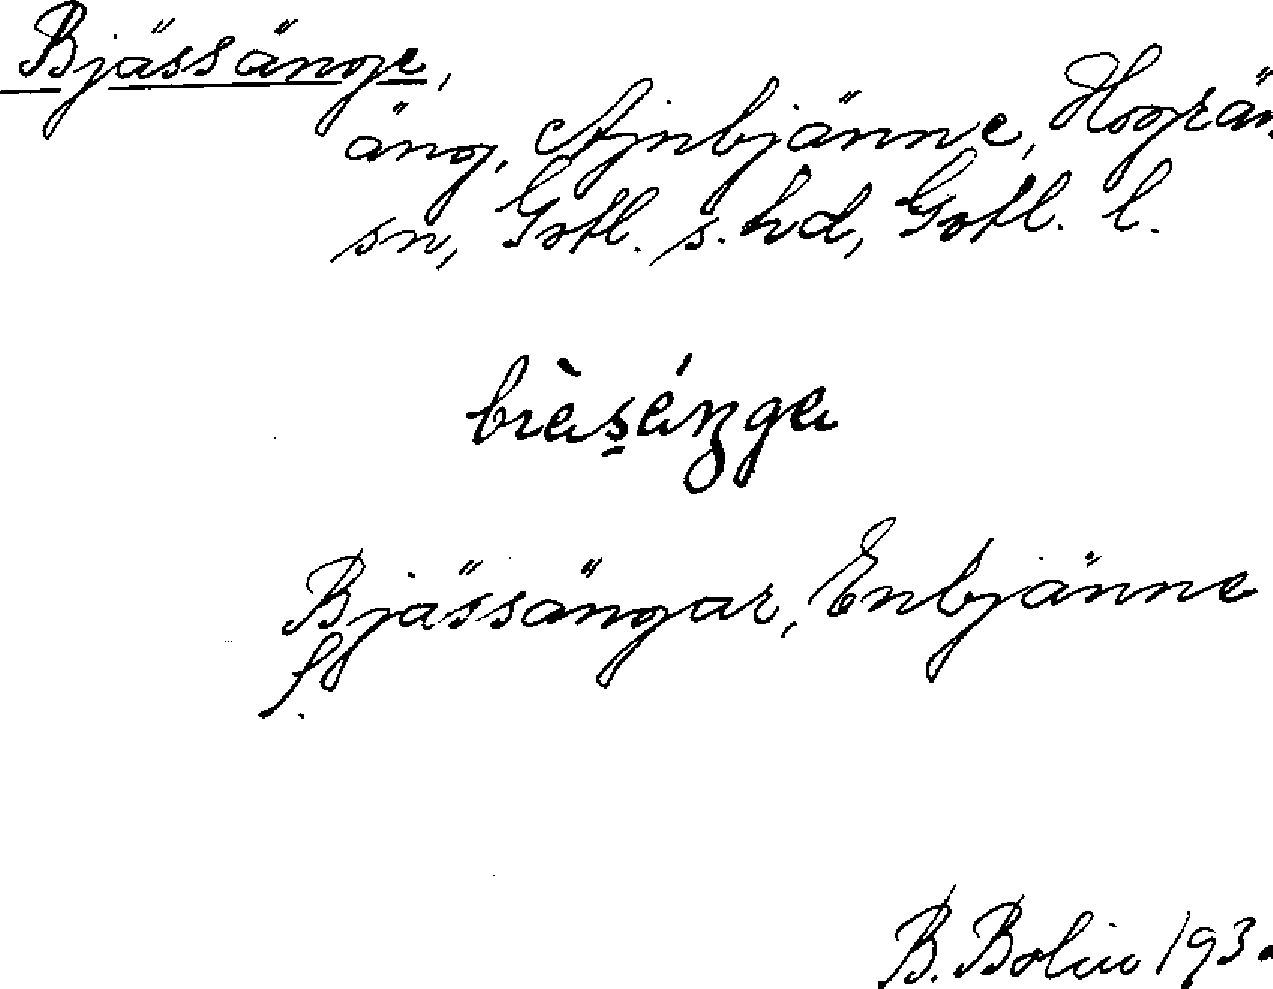 Bjässänge,
äng, Ajnbjänne, Hogrän
sn, Gotl. s. hd, Gotl. l.
Bjässängar, Enbjänne
f.
B. Bolin 193